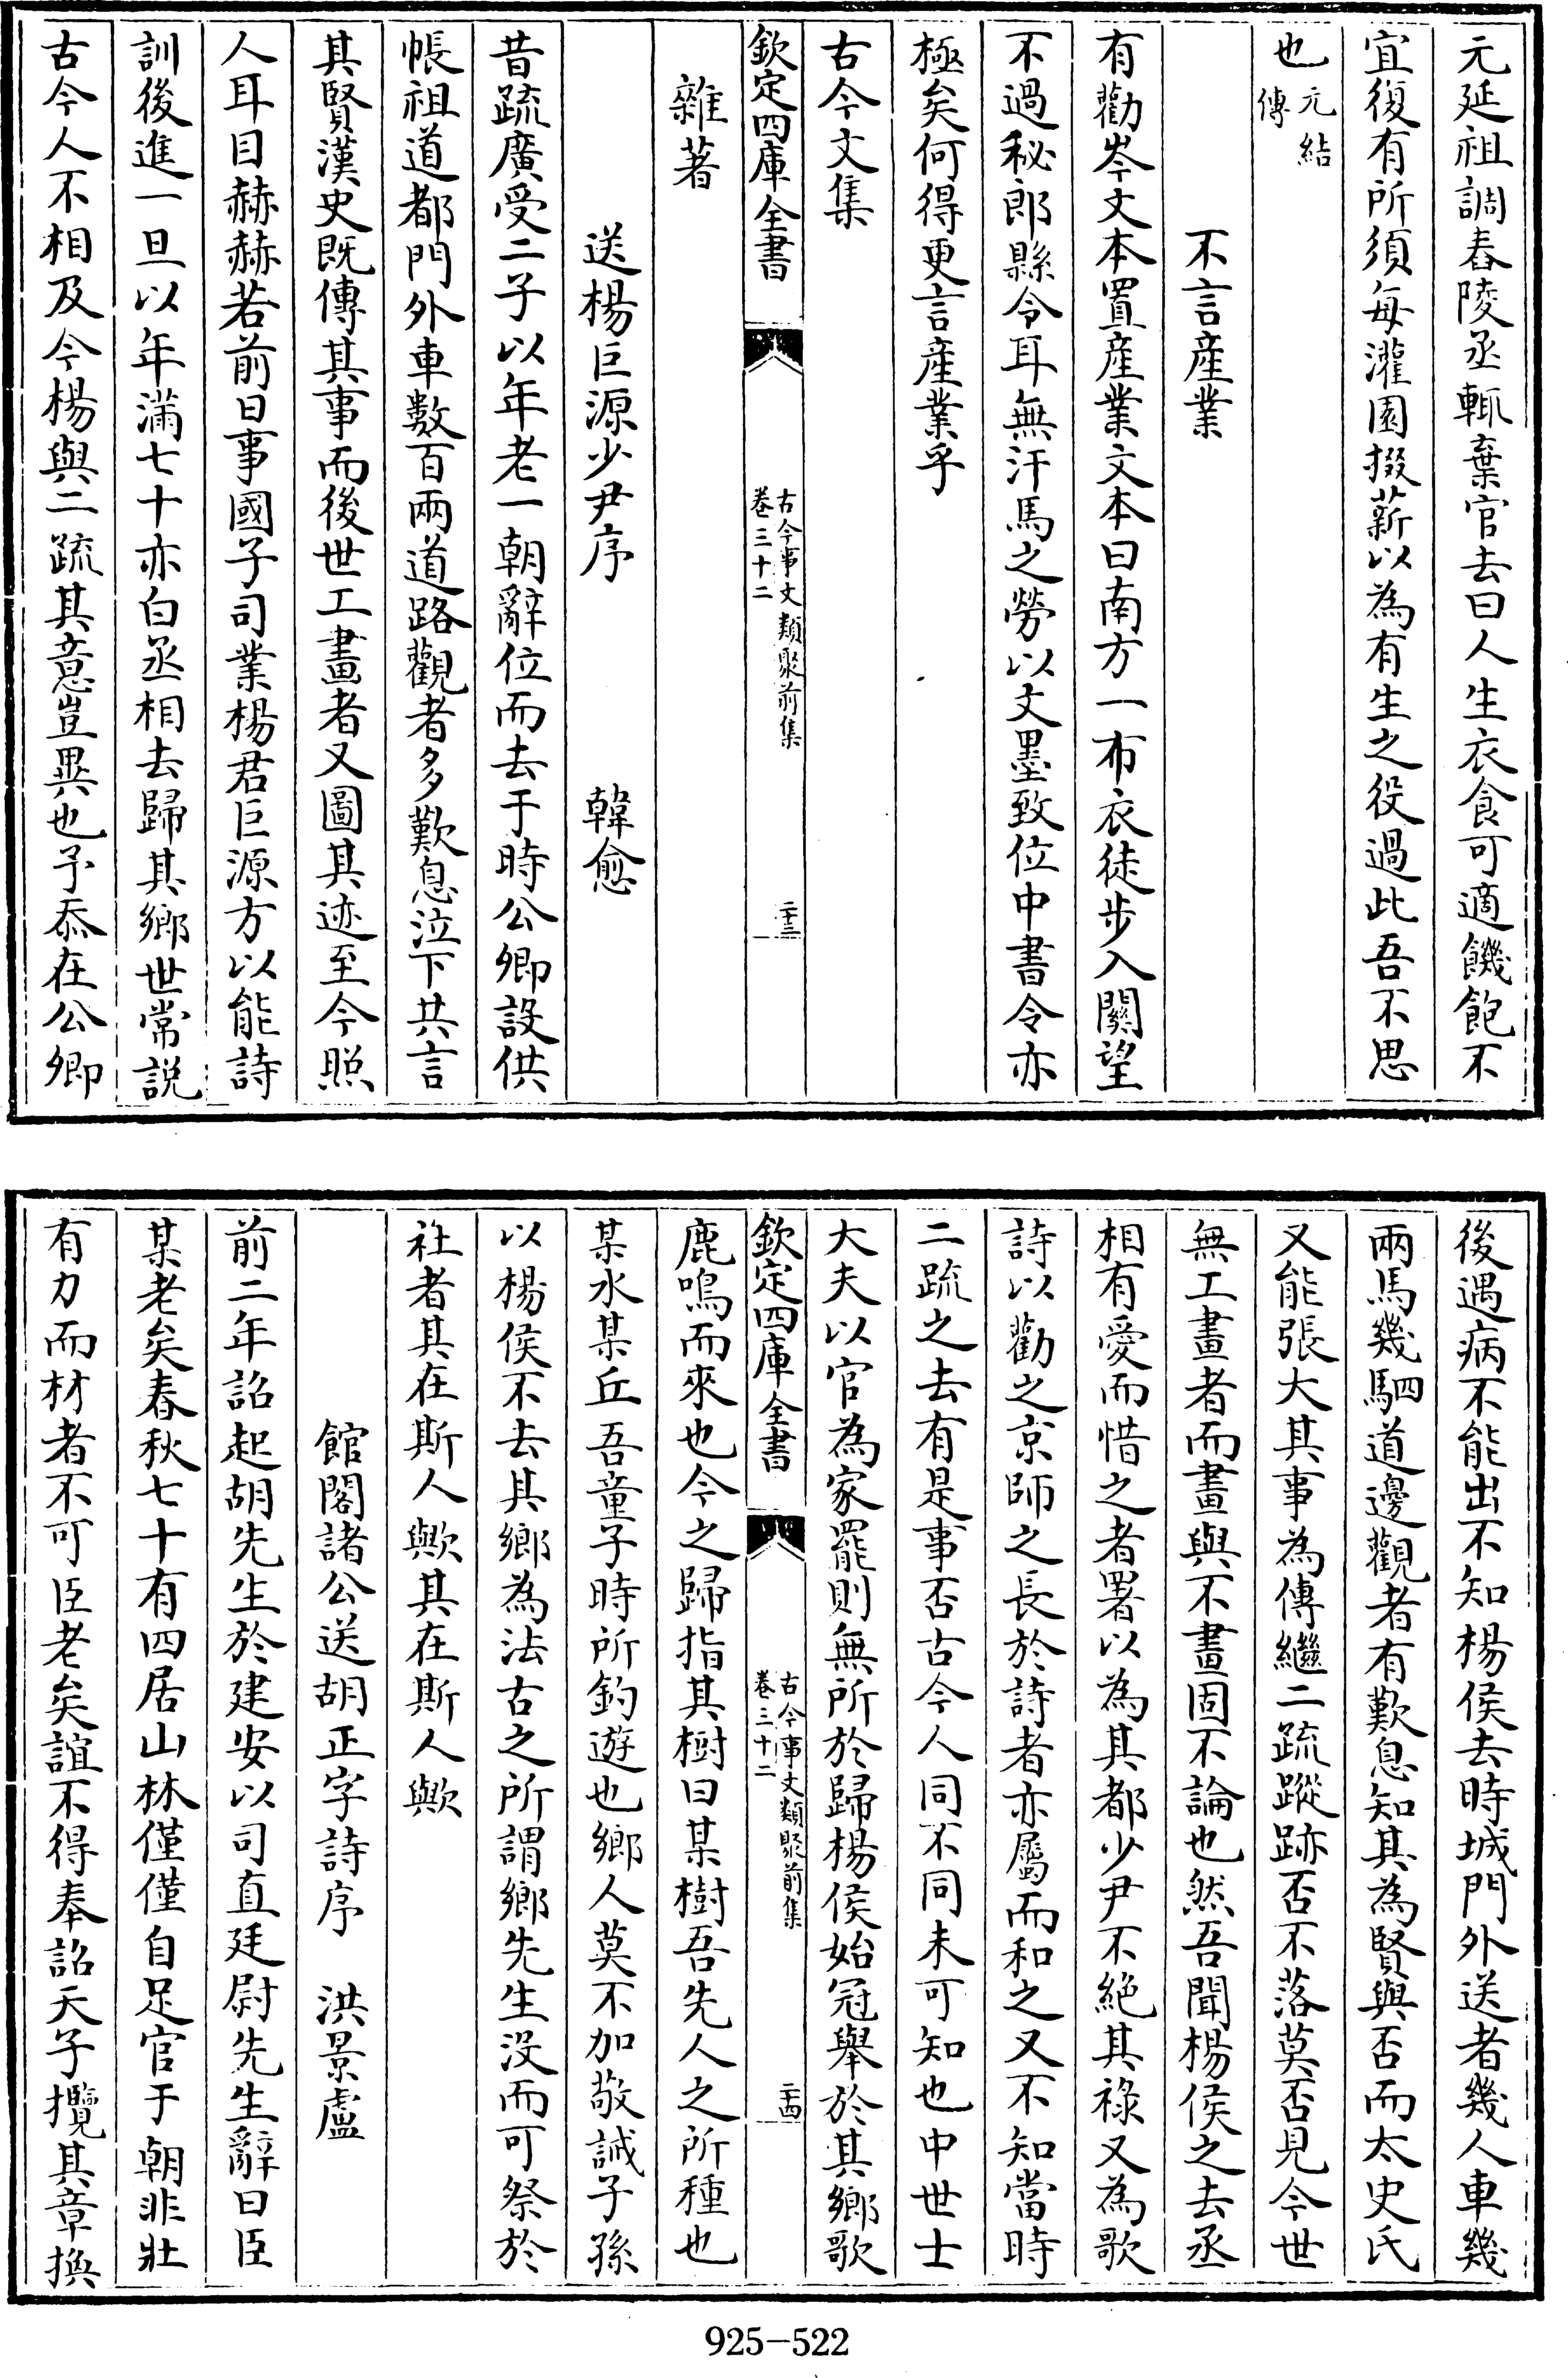 元延祖調舂陵丞輒棄官去曰人生衣食可適饑飽不
宜復有所須每灌園掇薪以為有生之役過此吾不思
也元結傳
不言産業
有勸岑文本置産業文本曰南方一布衣徒步入關望
不過秘郎縣令耳無汗馬之勞以文墨致位中書令亦
極矣何得更言産業乎
古今文集
欽定四庫全書
古今事文類聚前集
卷三十二
二十三
雜著
送楊巨源少尹序 韓愈
昔疏廣受二子以年老一朝辭位而去于時公卿設供
帳祖道都門外車數百兩道路觀者多歎息泣下共言
其賢漢史既傳其事而後世工畫者又圖其迹至今照
人耳目赫赫若前日事國子司業楊君巨源方以能詩
訓後進一旦以年滿七十亦白丞相去歸其鄉世常説
古今人不相及今楊與二疏其意豈異也予忝在公卿
後遇病不能出不知楊侯去時城門外送者幾人車幾
兩馬幾駟道邊觀者有歎息知其為賢與否而太史氏
又能張大其事為傳繼二疏蹤跡否不落莫否見今世
無工畫者而畫與不畫固不論也然吾聞楊侯之去丞
相有愛而惜之者署以為其都少尹不絶其祿又為歌
詩以勸之京師之長於詩者亦屬而和之又不知當時
二疏之去有是事否古今人同不同未可知也中世士
大夫以官為家罷則無所於歸楊侯始冠舉於其鄉歌
欽定四庫全書
古今事文類聚前集
卷三十二
二十四
鹿鳴而來也今之歸指其樹曰某樹吾先人之所種也
某水某丘吾童子時所釣遊也鄉人莫不加敬誡子孫
以楊侯不去其鄉為法古之所謂鄉先生没而可祭於
社者其在斯人歟其在斯人歟
館閣諸公送胡正字詩序 洪景盧
前二年詔起胡先生於建安以司直廷尉先生辭曰臣
某老矣春秋七十有四居山林僅僅自足官于朝非壯
有力而材者不可臣老矣誼不得奉詔天子攬其章換
925-522